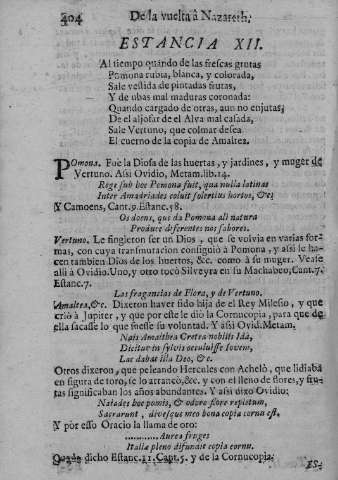 404 De la vuelta â Nazareth,
ESTANCIA XII.
Al tiempo quando de las frescas grutas
Pomona rubia, blanca, y colorada,
Sale vestida de pintadas frutas,
Y de ubas mal maduras coronada:
Quando cargado de otras, aun no enjutas;
De el aljofar de el Alva mal casada,
Sale Vertuno, que colmar desea
El cuerno de la copia de Amaltea.
Pomona. Fue la Diosa de las huertas, y jardines, y muger de
Vertuno. Assi Ovidio, Metam. lib. 14.
Rege sub hoc Pomona fuit, qua nulla latinas
Inter Amadriades coluit solertius hortos, &c;
Y Camoens, Cant. 9. Estanc. 58.
Os doens, que da Pomona ali natura
Produce diferentes nos sabores.
Vertuno. Le fingieron ser un Dios, que se volvia en varias for-
mas, con cuya transmutacion consiguiò a Pomona, y assi le ha-
cen tambien Dios de los huertos, &c. como â su muger. Vease
alli â Ovidio. Uno, y otro tocò Silveyra en su Machabeo, Cant. 7.
Estanc. 7.
Las fragancias de Flora, y de Vertuno.
Amaltea, &c. Dixeron haver sido hija de el Rey Milesio, y que
criò â Jupiter, y que por este le diò la Cornucopia, para que de
ella sacasse lo que fuesse su voluntad. Y assi Ovid. Metam.
Nais Amalthea Cretea nobilis Ida,
Dicitur in sylvis occuluisse Iovem,
Lac dabat illa Deo, &c.
Otros dixeron, que peleando Hercules con Achelò, que lidiaba
en figura de toro, se lo arrancò, &c. y con el lleno de flores, y fru-
tas significaban los años abundantes. Y assi dixo Ovidio;
Naiades hoc pomis, & odore flore repletum,
Sacrarunt, divesque meo bona copia cornu est.
Y por esso Oracio la llama de oro:
........... Aurea fruges
Italia pleno difundit copia cornu.
Queda dicho Estanc. 11. Cant. 5. y de la Cornucopia.
ES-